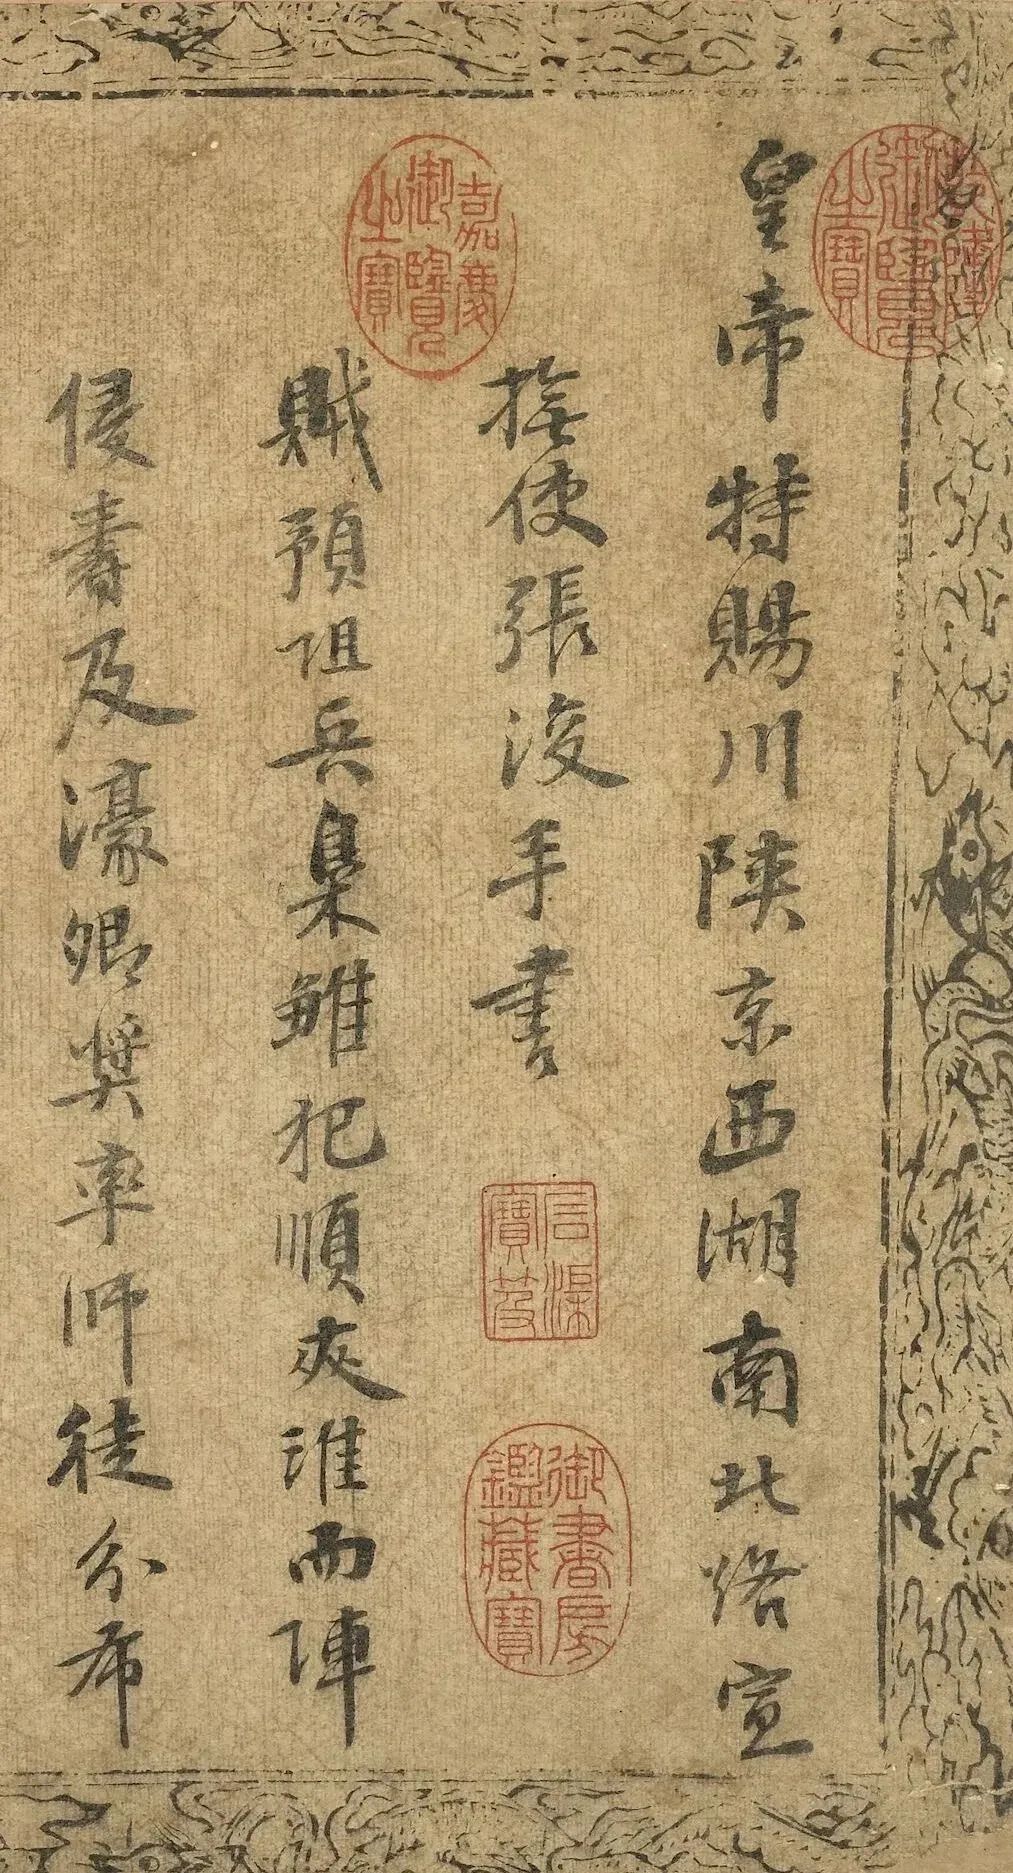 皇帝特賜川陝京西湖南北路宣
撫使張浚手書
賊預阻兵梟雛犯順夾淮而陣
侵壽及濠卿奨率師徒分布
乾隆御覽之寶
嘉慶御覽之寶
御書房鑑藏寶